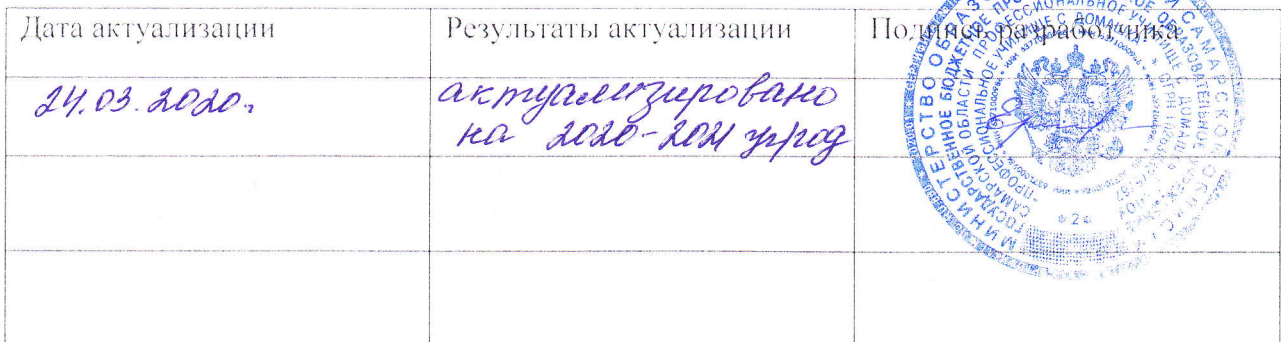 Дата актуализации
Результаты актуализации
Подпись разработчика
24.03.2020г
актуализировано
на 2020-2021 уч/год
МИНИСТЕРСТВО ОБРАЗО
САМАРСКОЙ
ГОСУДАРСТВЕННОЕ БЮДЖЕТНОЕ ПРО
ОБРАЗОВАТЕЛЬНОЕ
САМАРСКОЙ ОБЛАСТИ
ПРОФЕССИОНАЛЬНОЕ УЧИЛИЩЕ С. ДОМАШКА
*2*